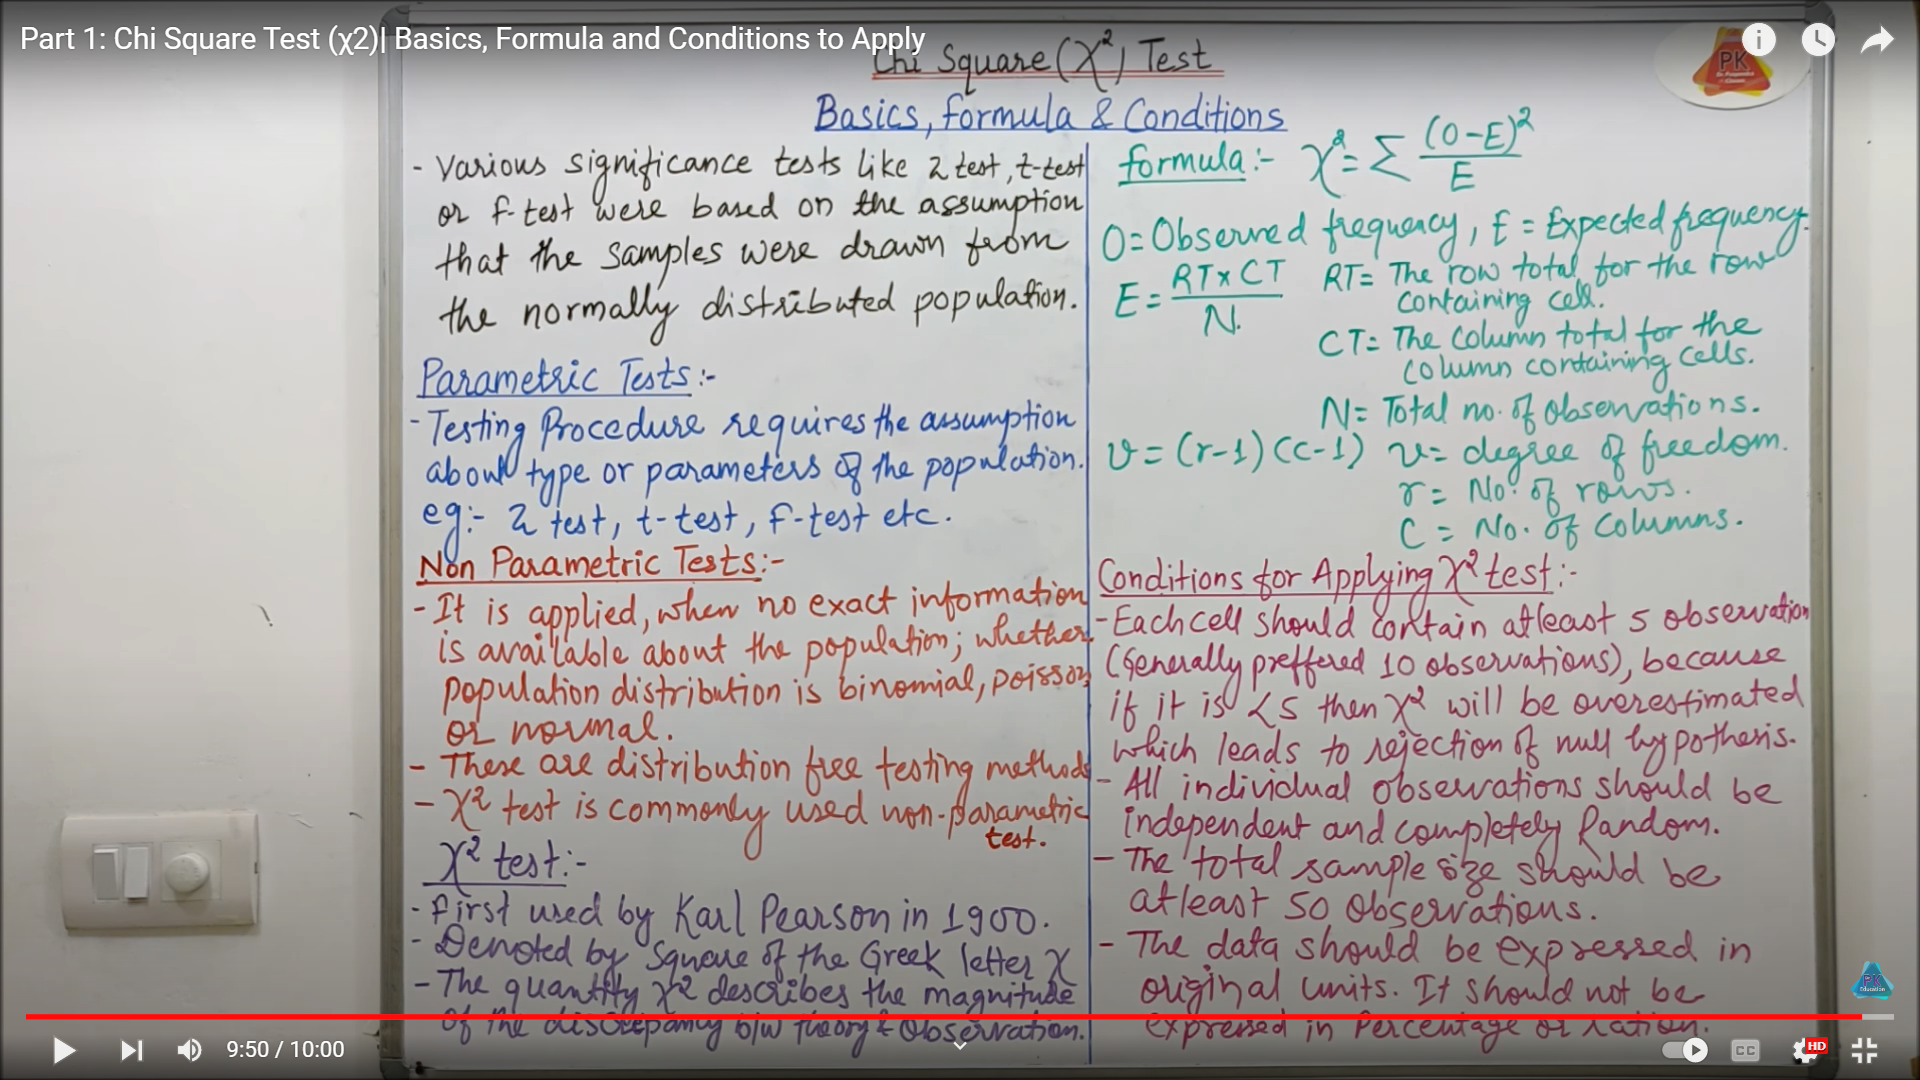 Part 1: Chi Square Test (χ2)| Basics, Formula and Conditions to Apply
Chi Square (χ²) Test
PK
Basics, formula & Conditions
- Various significance tests like Z test, t-test
or F-test were based on the assumption
that the samples were drawn from
the normally distributed population.
Parametric Tests:-
- Testing Procedure requires the assumption
about type or parameters of the population.
eg:- Z test, t-test, F-test etc.
Non Parametric Tests:-
- It is applied, when no exact information
is available about the population; whether
population distribution is binomial, poisson
or normal.
- These are distribution free testing methods
- χ² test is commonly used non-parametric
test.
χ² test:-
- First used by Karl Pearson in 1900.
- Denoted by square of the Greek letter χ
- The quantity χ² describes the magnitude
of the discrepancy b/w theory & observation.
formula:- χ² = Σ (O-E)² / E
O = Observed frequency, E = Expected frequency.
E = RT × CT / N.
RT = The row total for the row
containing cell.
CT = The column total for the
column containing cells.
N = Total no. of observations.
υ = (r-1) (c-1) υ = degree of freedom.
r = No. of rows.
C = No. of columns.
Conditions for Applying χ² test:-
- Each cell should contain atleast 5 observation
(generally preffered 10 observations), because
if it is <5 then χ² will be overestimated
which leads to rejection of null hypothesis.
- All individual observations should be
independent and completely Random.
- The total sample size should be
atleast 50 observations.
- The data should be expressed in
original units. It should not be
expressed in Percentage or ration.
PK
Education
9:50 / 10:00
CC
HD